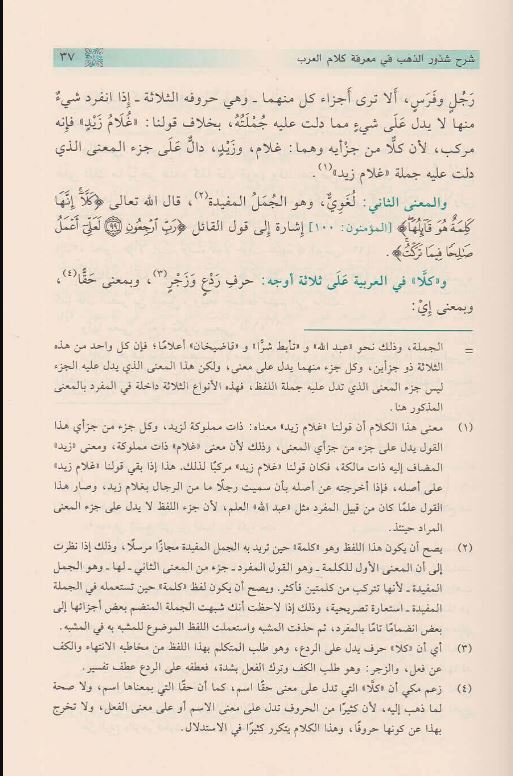 شرح شذور الذهب في معرفة كلام العرب ٣٧
رَجُلٍ وفَرَسٍ، أَلا ترى أجزاء كل منهما ـ وهي حروفه الثلاثة ـ إذا انفرد شيءٌ
منها لا يدل عَلَى شيءٍ مما دلت عليه جُمْلَتُهُ، بخلاف قولنا: «غُلَامُ زَيْدٍ» فإنه
مركب، لأن كلًّا من جزْأيه وهما: غلام، وزَيْدٍ، دالٌّ عَلَى جزء المعنى الذي
دلت عليه جملة «غلام زيد»(١).
والمعنى الثاني: لُغَوِيٌّ، وهو الجُمَلُ المفيدة(٢)، قال الله تعالى ﴿كَلَّآ إِنَّهَا
كَلِمَةٌ هُوَ قَآئِلُهَا﴾ [المؤمنون: ١٠٠] إشارة إلى قول القائل ﴿رَبِّ ٱرْجِعُونِ ۝٩٩ لَعَلِّىٓ أَعْمَلُ
صَٰلِحًا فِيمَا تَرَكْتُ﴾.
و«كلَّا» في العربية عَلَى ثلاثة أوجه: حرفِ رَدْعٍ وَزَجْرٍ(٣)، وبمعنى حَقًّا(٤)،
وبمعنى إيْ:
= الجملة، وذلك نحو «عبد الله» و «تأبط شرًّا» و «قاضيخان» أعلامًا؛ فإن كل واحد من هذه
الثلاثة ذو جزأين، وكل جزء منهما يدل على معنى، ولكن هذا المعنى الذي يدل عليه الجزء
ليس جزء المعنى الذي تدل عليه جملة اللفظ، فهذه الأنواع الثلاثة داخلة في المفرد بالمعنى
المذكور هنا.
(١) معنى هذا الكلام أن قولنا «غلام زيد» معناه: ذات مملوكة لزيد، وكل جزء من جزأي هذا
القول يدل على جزء من جزأي المعنى، وذلك لأن معنى «غلام» ذات مملوكة، ومعنى «زيد»
المضاف إليه ذات مالكة، فكان قولنا «غلام زيد» مركبًا لذلك. هذا إذا بقي قولنا «غلام زيد»
على أصله، فإذا أخرجته عن أصله بأن سميت رجلًا ما من الرجال بغلام زيد، وصار هذا
القول علمًا كان من قبيل المفرد مثل «عبد الله» العلم، لأن جزء اللفظ لا يدل على جزء المعنى
المراد حينئذ.
(٢) يصح أن يكون هذا اللفظ وهو «كلمة» حين تريد به الجمل المفيدة مجازًا مرسلًا، وذلك إذا نظرت
إلى أن المعنى الأول للكلمة ـ وهو القول المفرد ـ جزء من المعنى الثاني ـ لها ـ وهو الجمل
المفيدة ـ لأنها تتركب من كلمتين فأكثر. ويصح أن يكون لفظ «كلمة» حين تستعمله في الجملة
المفيدة ـ استعارة تصريحية، وذلك إذا لاحظت أنك شبهت الجملة المنضم بعض أجزائها إلى
بعض انضمامًا تامًا بالمفرد، ثم حذفت المشبه واستعملت اللفظ الموضوع للمشبه به في المشبه.
(٣) أي أن «كلا» حرف يدل على الردع، وهو طلب المتكلم بهذا اللفظ من مخاطبه الانتهاء والكف
عن فعل، والزجر: وهو طلب الكف وترك الفعل بشدة، فعطفه على الردع عطف تفسير.
(٤) زعم مكي أن «كلَّا» التي تدل على معنى حقًا اسم، كما أن حقًا التي بمعناها اسم، ولا صحة
لما ذهب إليه، لأن كثيرًا من الحروف تدل على معنى الاسم أو على معنى الفعل، ولا تخرج
بهذا عن كونها حروفًا، وهذا الكلام يتكرر كثيرًا في الاستدلال.